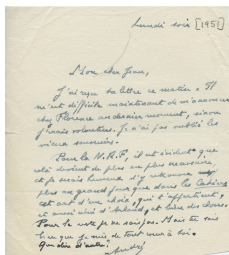 Lundi soir [1951]
Mon cher Jean,
J'ai reçu ta lettre ce matin. Il
m'est difficile maintenant de m'annoncer
chez Florence au dernier moment, sinon
j'irais volontiers. Je n'ai pas oublié les
vieux souvenirs.
Pour la N.R.F., il est évident que
cela devient de plus en plus
et je serais heureux d'y retrouver
plus au grand jour que dans les Cahiers
cet art d'un choix, qui t'appartient,
et aussi ainsi d'Arland, et bien des choses.
Pour le reste je ne sais pas. Mais tu sais
bien que je suis de tout cœur à toi.
André